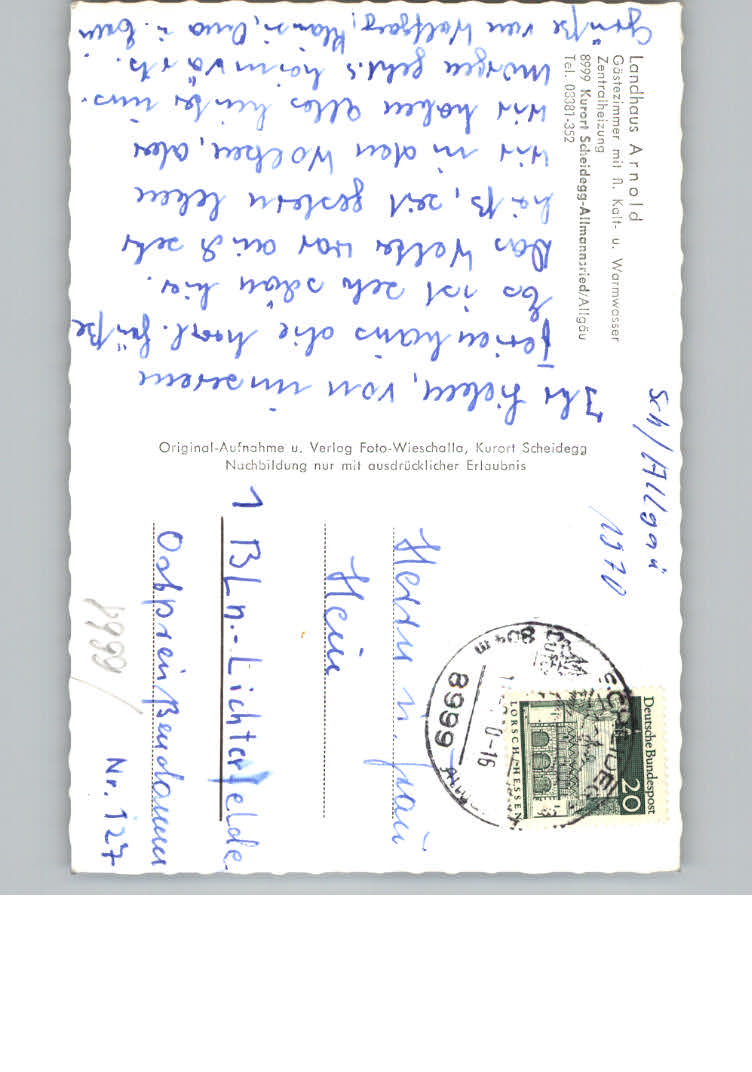 Landhaus Arnold
Gästezimmer mit fl. Kalt- u. Warmwasser
Zentralheizung
8999 Kurort Scheidegg-Allmannsried/Allgäu
Tel. 08381-352
Sch/Allgäu
1970
Ihr Lieben, von unserem
Ferienhaus die herzl. Grüße
Es ist sehr schön hier.
Das Wetter war auch sehr
heiß, seit gestern leben
wir in den Wolken, aber
wir haben alles hinter uns.
Morgen geht's heimwärts.
Grüße von Wolfgang, Klausi, Oma u.
Original-Aufnahme u. Verlag Foto-Wieschalla, Kurort Scheidegg
Nachbildung nur mit ausdrücklicher Erlaubnis
Deutsche Bundespost
20
LORSCH/HESSEN
8999
SCHEIDEGG
-16
Herrn u. Frau
Hein
1 Bln.-Lichterfelde
Ostpreußendamm
Nr. 127
8999/